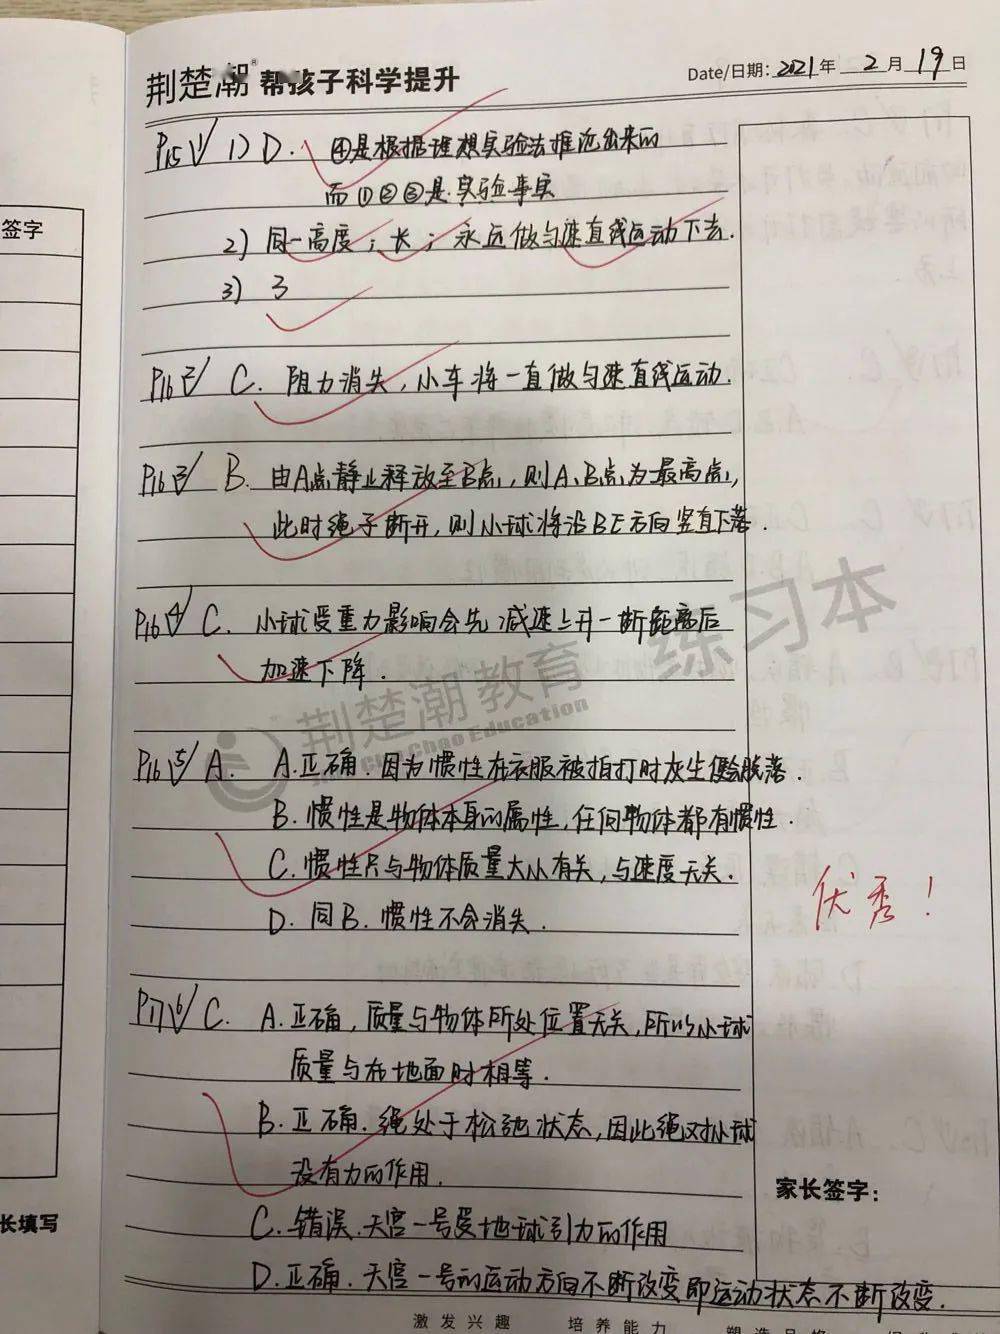 荆楚潮® 帮孩子科学提升
Date/日期: 2021 年 2 月 19 日
P15 1/ 1) D. ④是根据理想实验法推论出来的
而①②③是实验事实
2) 同一高度；长；永远做匀速直线运动下去.
3) 3
P16 2/ C. 阻力消失，小车将一直做匀速直线运动.
P16 3/ B. 由A点静止释放至B点，则A、B点为最高点，
此时绳子断开，则小球将沿BE方向竖直下落.
P16 4/ C. 小球受重力影响会先减速上升一断距离后
加速下降.
P16 5/ A. A.正确.因为惯性在衣服被拍打时灰尘便会脱落.
B.惯性是物体本身的属性，任何物体都有惯性.
C.惯性只与物体质量大小有关，与速度无关.
D.同B.惯性不会消失.
P17 6/ C. A.正确，质量与物体所处位置无关，所以小球
质量与在地面时相等.
B.正确.绳处于松弛状态，因此绳对小球
没有力的作用.
C.错误.天宫一号受地球引力的作用
D.正确.天宫一号的运动方向不断改变即运动状态不断改变.
优秀！
家长签字:
签字
长填写
荆楚潮教育 练习本
Education
激发兴趣 培养能力